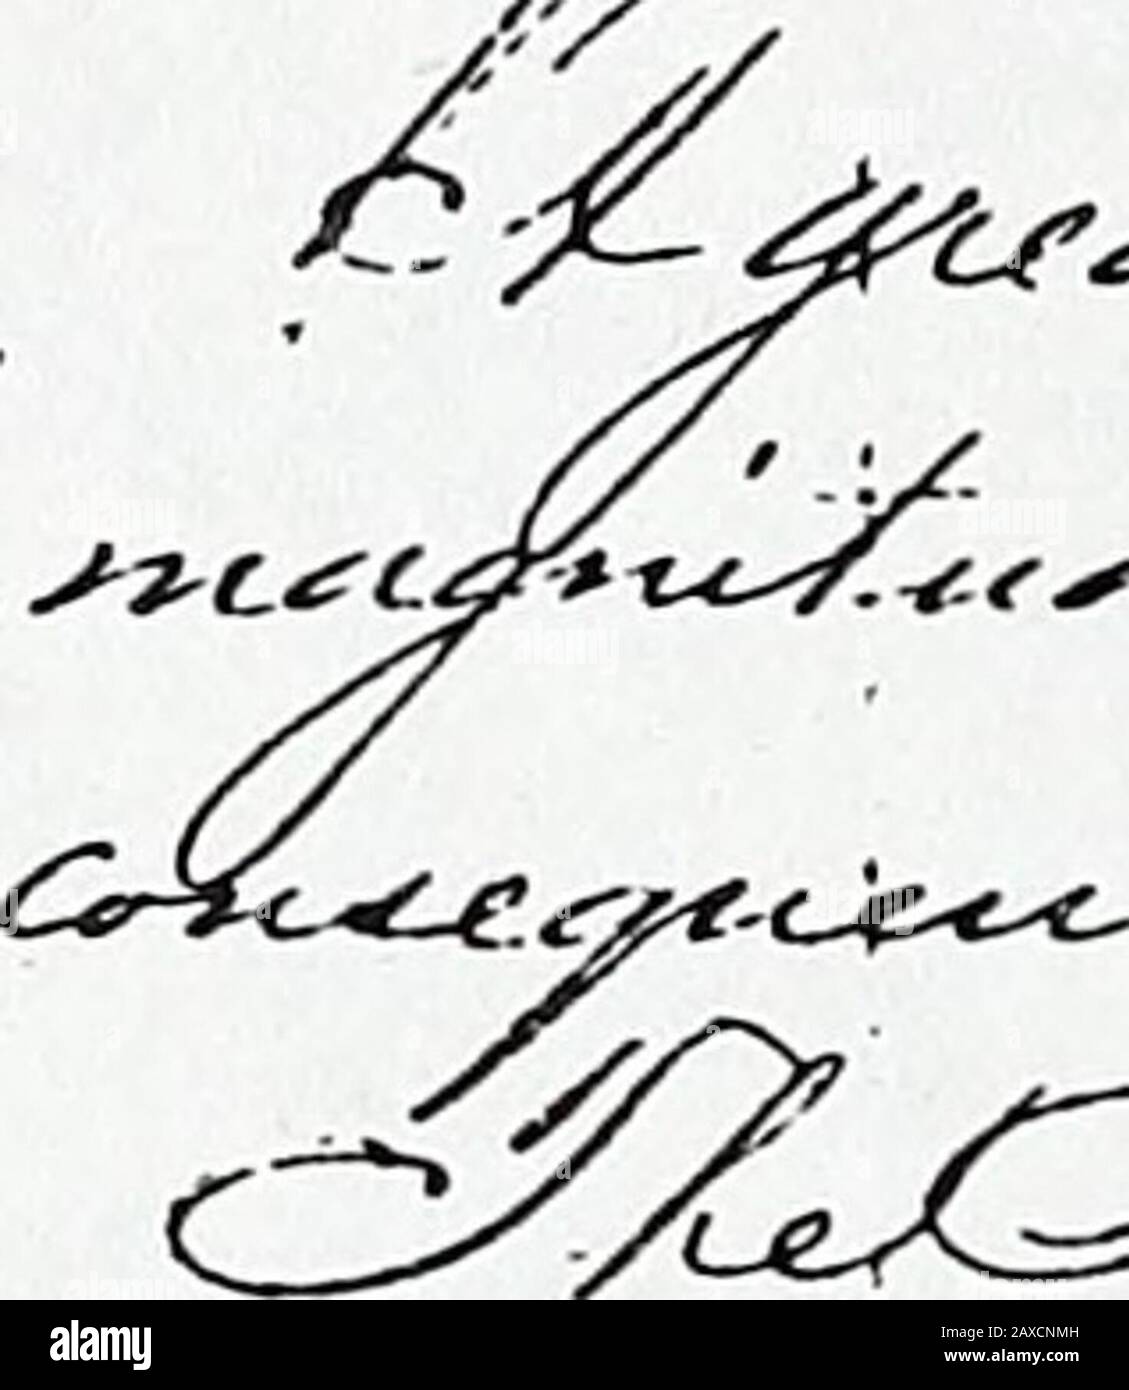 grea
magnitud
consequen
The
alamy
Image ID: 2AXCNMH
www.alamy.com